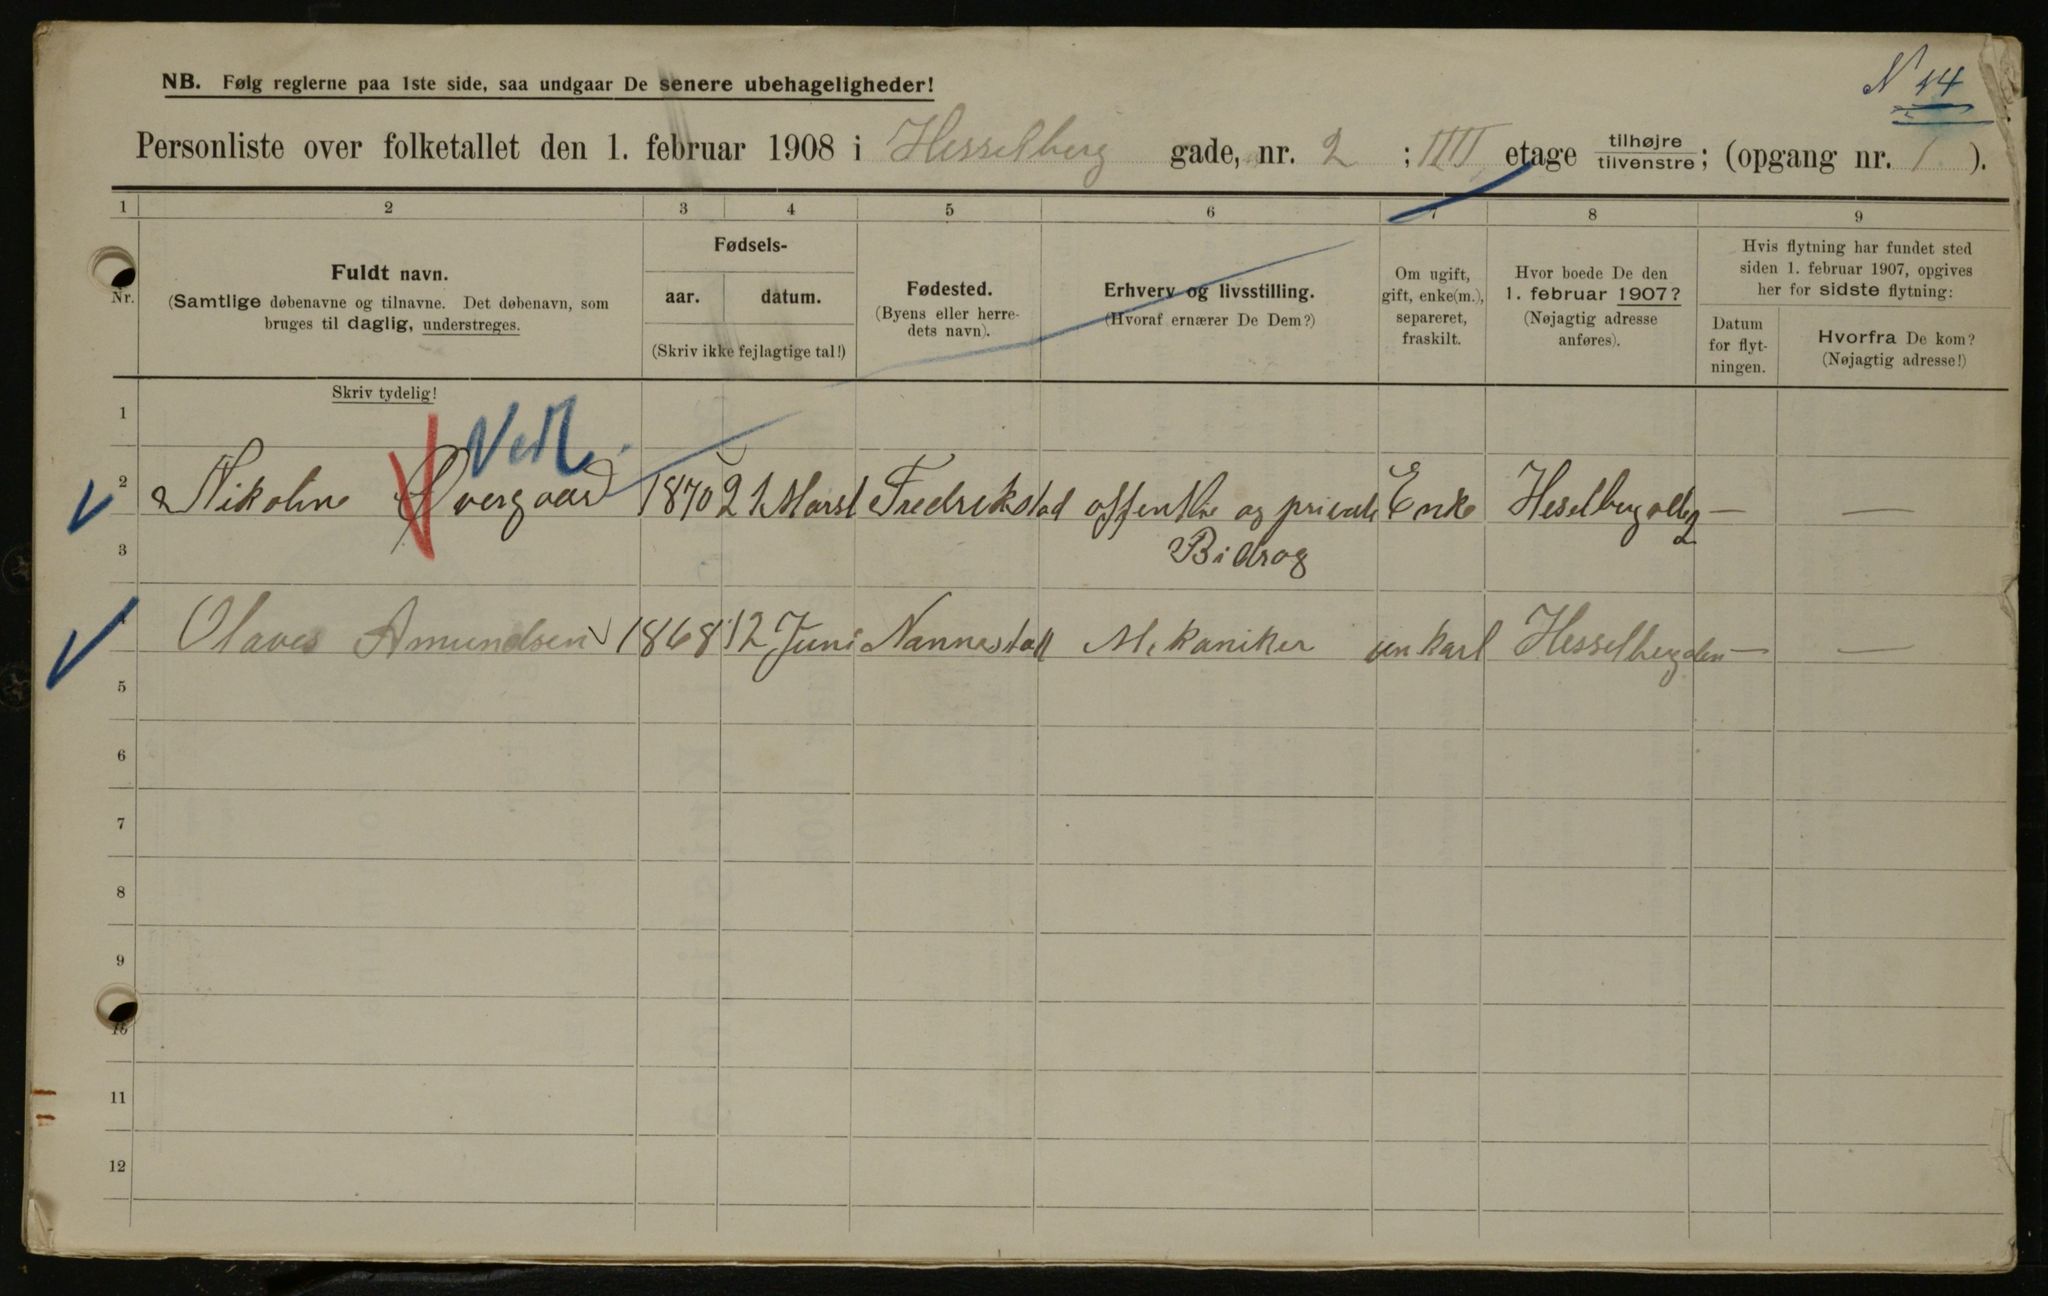 N 44
NB. Følg reglerne paa 1ste side, saa undgaar De senere ubehageligheder!
Personliste over folketallet den 1. februar 1908 i Hesselberg gade, nr. 2 ; IIII etage tilhøjre tilvenstre; (opgang nr. 1 ).
1 2 3 4 5 6 7 8 9
Nr.
Fuldt navn.
(Samtlige døbenavne og tilnavne. Det døbenavn, som
bruges til daglig, understreges.
Fødsels-
aar. datum.
(Skriv ikke fejlagtige tal!)
Fødested.
(Byens eller herre-
dets navn).
Erhverv og livsstilling.
(Hvoraf ernærer De Dem?)
Om ugift,
gift, enke(m.),
separeret,
fraskilt.
Hvor boede De den
1. februar 1907?
(Nøjagtig adresse
anføres).
Hvis flytning har fundet sted
siden 1. februar 1907, opgives
her for sidste flytning:
Datum
for flyt-
ningen.
Hvorfra De kom?
(Nøjagtig adresse!)
Skriv tydelig!
1
2 Nikoline Overgaard 1870 21 Marst Fredrikstad offentlie og private Enke 2 — —
3 Bidrag
Olaves Amundsen 1868 12 Juni Nannestad Mekaniker unkarl — —
5
6
7
8
9
10
11
12